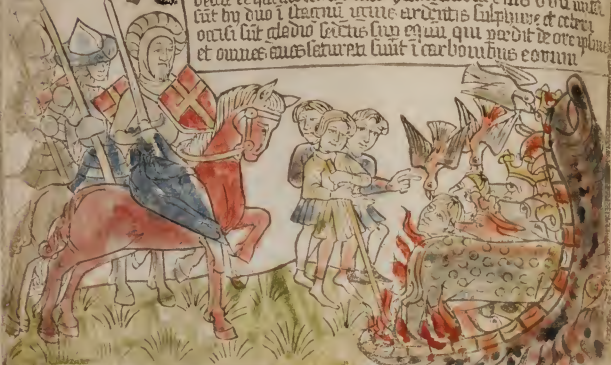 sūt hy duo ī stagnū ignis ardentis sulphure et ceteri
occisi sūt gladio sedētis sup equū qui pcedit de ore ipsius
et omnes aues saturati sunt ī carbonibus eorum